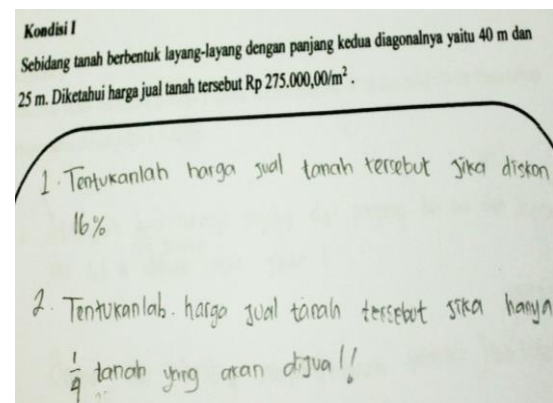 Kondisi I
Sebidang tanah berbentuk layang-layang dengan panjang kedua diagonalnya yaitu 40 m dan
25 m. Diketahui harga jual tanah tersebut Rp 275.000,00/m².
1. Tentukanlah harga jual tanah tersebut jika diskon
16%
2. Tentukanlah harga jual tanah tersebut jika hanya
1/4 tanah yang akan dijual!!